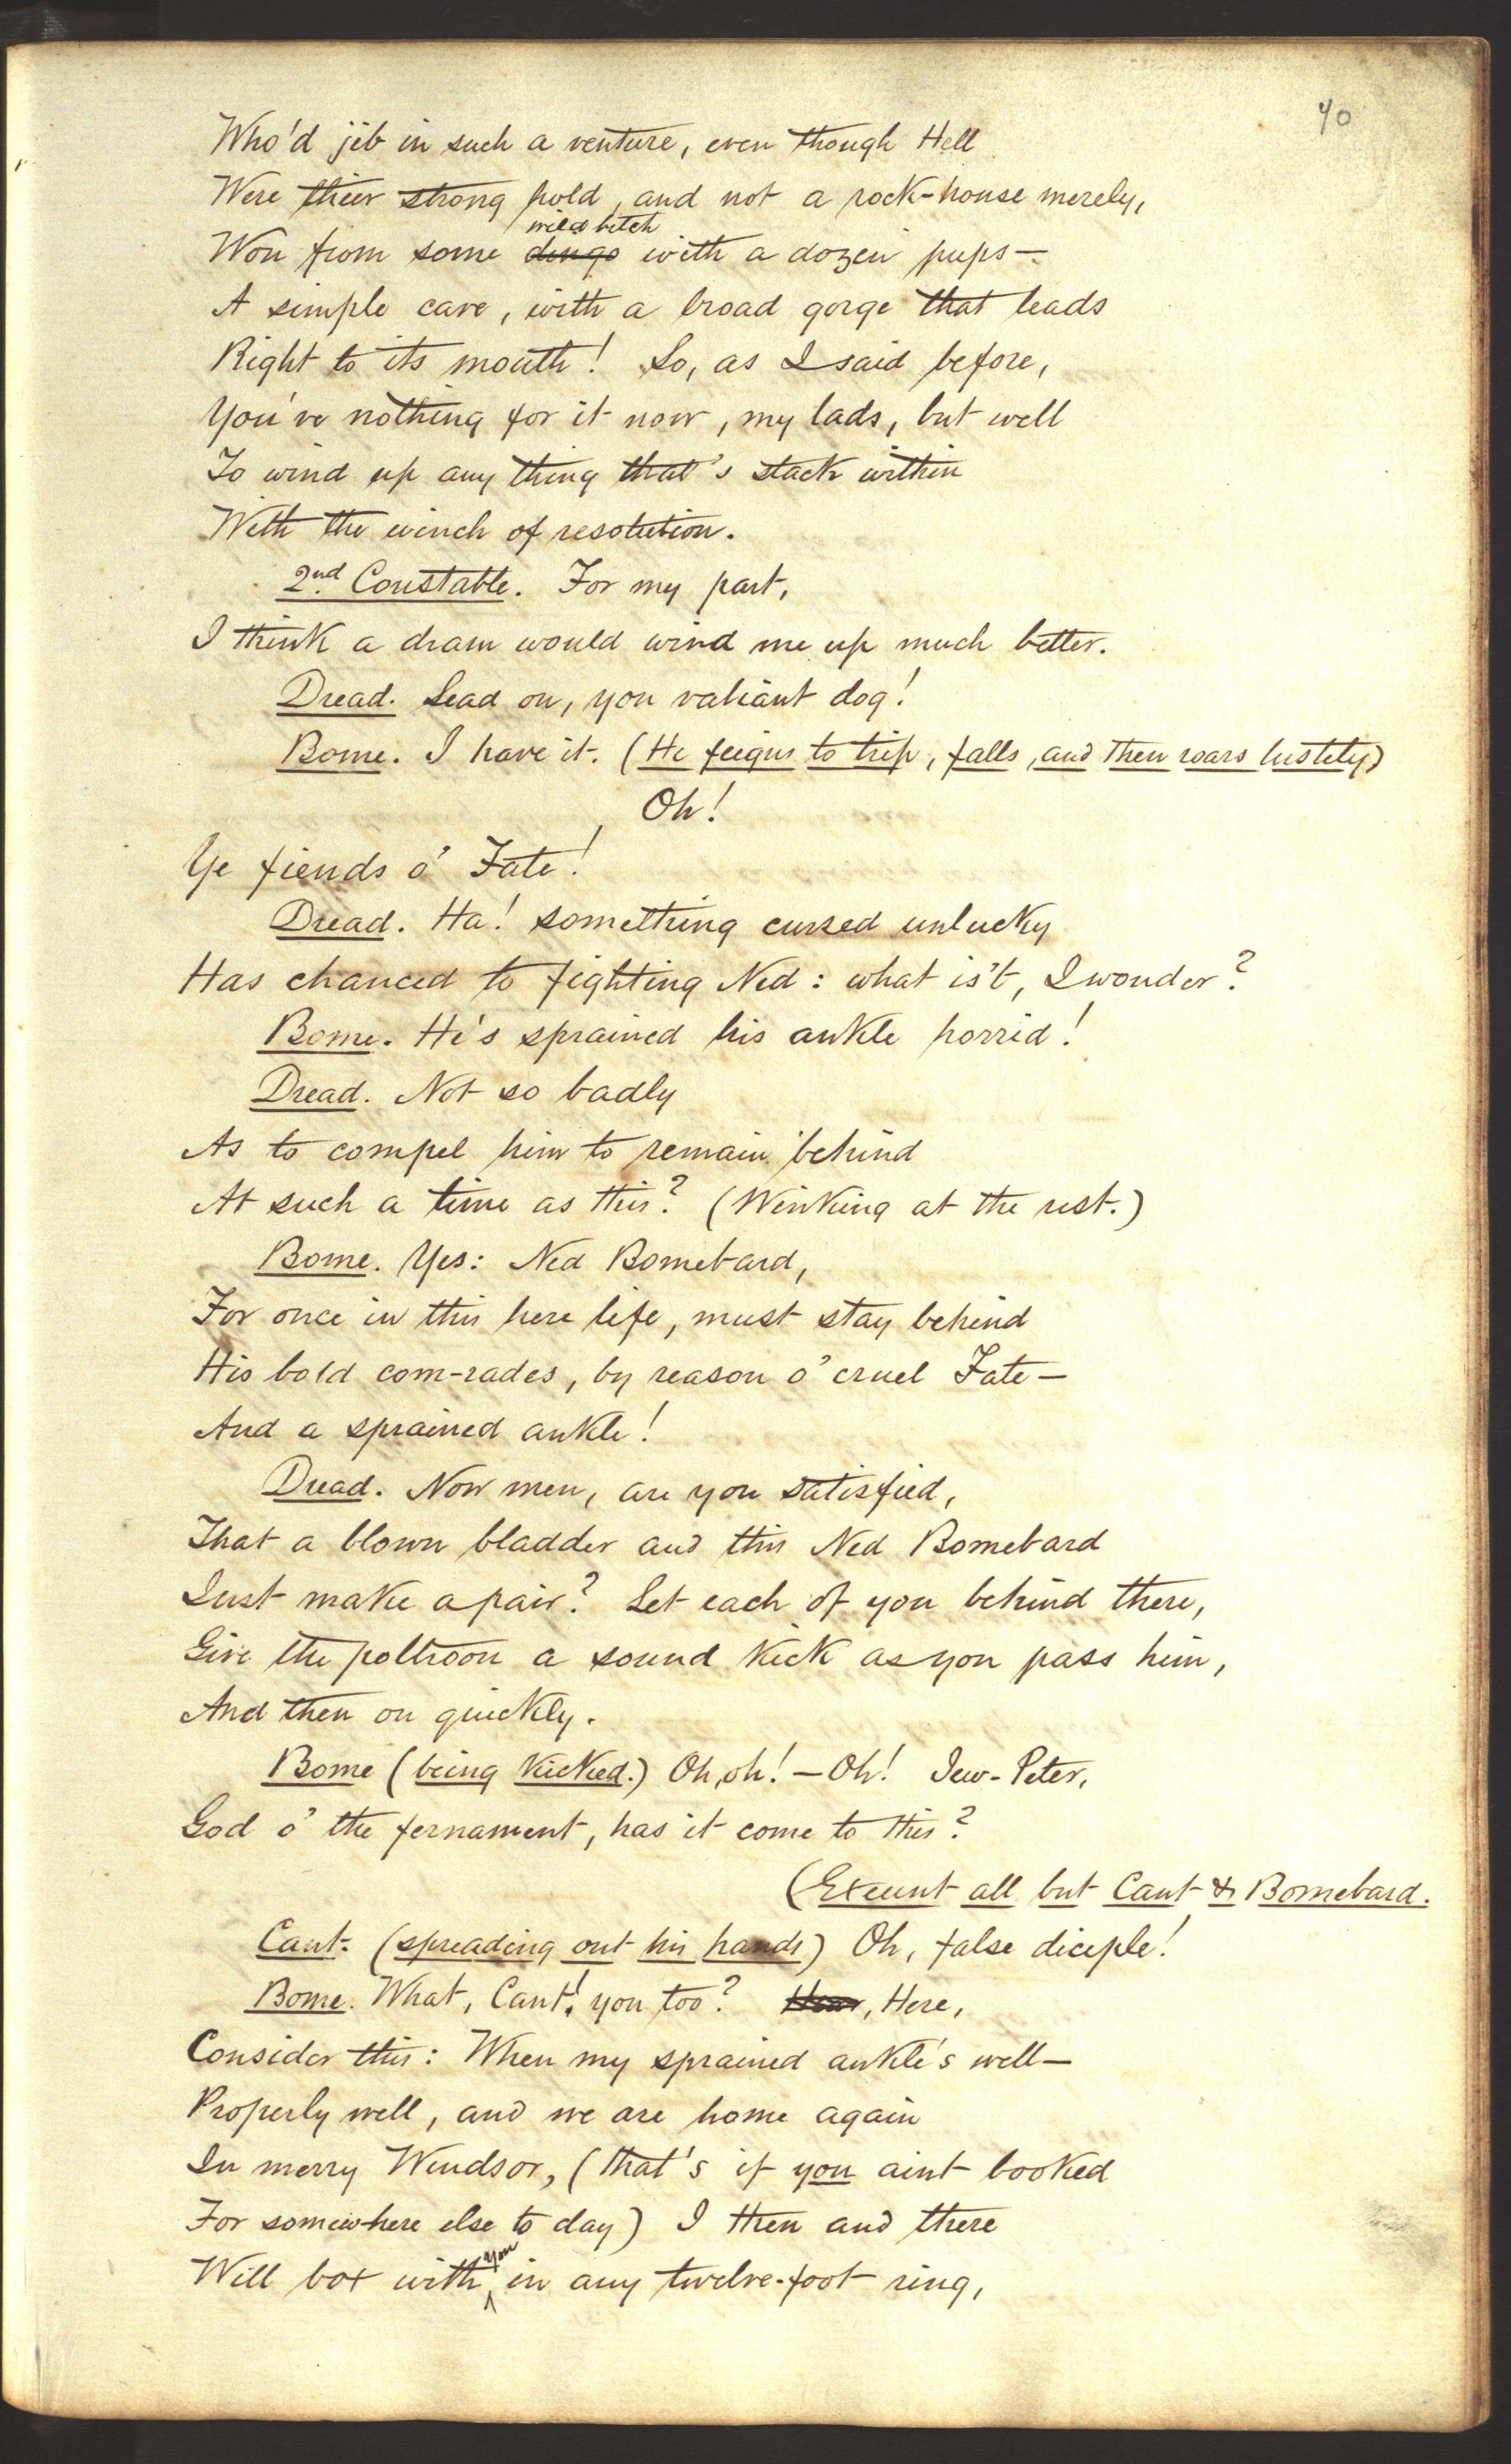 40
Who'd jib in such a venture, even though Hell
Were their strong hold, and not a rock-house merely,
wild bitch
Won from some dingo with a dozen pups—
A simple cave, with a broad gorge that leads
Right to its mouth! So, as I said before,
You've nothing for it now, my lads, but well
To wind up any thing that's slack within
With the winch of resolution.
2nd. Constable. For my part,
I think a dram would wind me up much better.
Dread. Lead on, you valiant dog!
Bome. I have it. (He feigns to trip, falls, and then roars lustily)
Oh!
Ye fiends o' Fate!
Dread. Ha! something cursed unlucky
Has chanced to fighting Ned: what is't, I wonder?
Bome. He's sprained his ankle horrid!
Dread. Not so badly
As to compel him to remain behind
At such a time as this? (Winking at the rest.)
Bome. Yes: Ned Bomebard,
For once in this here life, must stay behind
His bold com-rades, by reason o' cruel Fate—
And a sprained ankle!
Dread. Now men, are you satisfied,
That a blown bladder and this Ned Bomebard
Just make a pair? Let each of you behind there,
Give the poltroon a sound kick as you pass him,
And then on quickly.
Bome (being kicked.) Oh, oh!—Oh! Jew-Peter,
God o' the fernament, has it come to this?
(Exeunt all but Cant & Bomebard.
Cant. (spreading out his hands) Oh, false diciple!
Bome. What, Cant! you too? Here,
Consider this: When my sprained ankle's well—
Properly well, and we are home again
In merry Windsor, (that's if you aint booked
For somewhere else to day) I then and there
Will box with you in any twelve-foot ring,